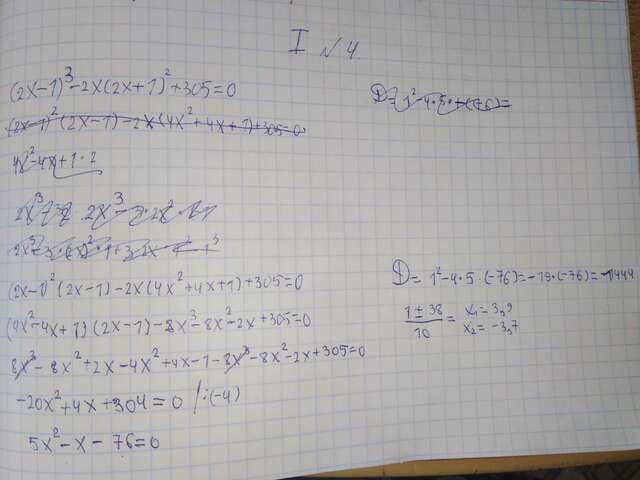 I №4
(2x-1)³-2x(2x+1)²+305=0
(2x-1)²(2x-1)-2x(4x²+4x+1)+305=0
4x²-4x+1·2
(2x-1)²(2x-1)-2x(4x²+4x+1)+305=0
(4x²-4x+1)(2x-1)-8x³-8x²-2x+305=0
8x³-8x²+2x-4x²+4x-1-8x³-8x²-2x+305=0
-20x²+4x+304=0 /:(-4)
5x²-x-76=0
D=1²-4·5·(-76)=
D=1²-4·5·(-76)=-19·(-76)=1444
1±38/10 = x₁=3,9
x₂=-3,7